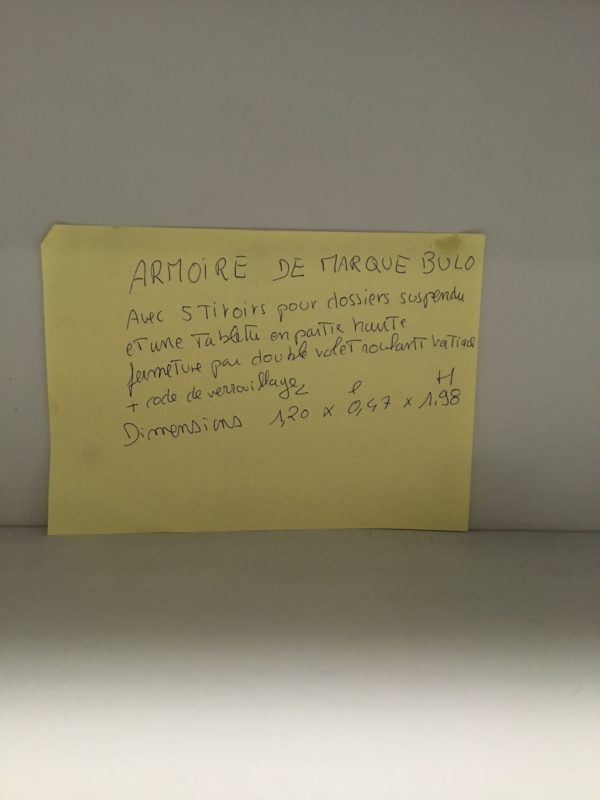 ARMOIRE DE MARQUE BULO
Avec 5 Tiroirs pour dossiers suspendu
et une Tablette en partie haute
fermeture par double volet roulant vertical
+ code de verrouillage
L l H
Dimensions 1,20 x 0,47 x 1.98